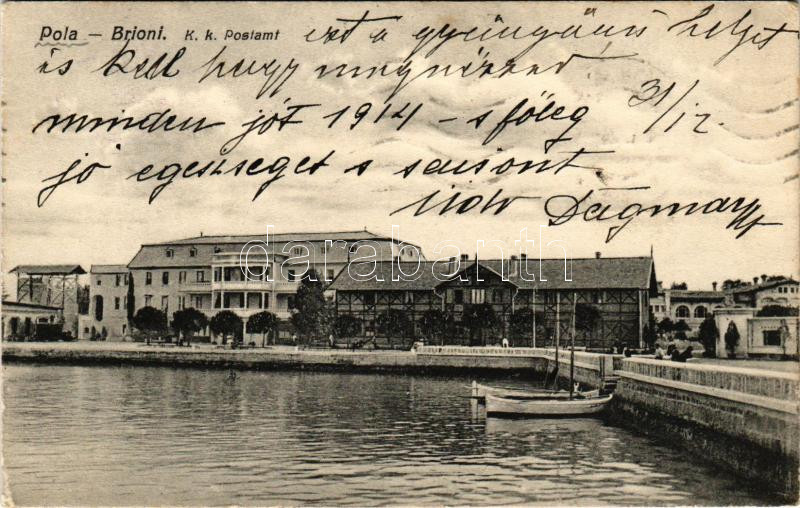 Pola – Brioni. K. k. Postamt
ezt a gyöngyörü helyet
és kell hogy megnézzed
31/12.
minden jót 1914 - s főleg
jó egeszseget s saisont
Dagmar
darabanth